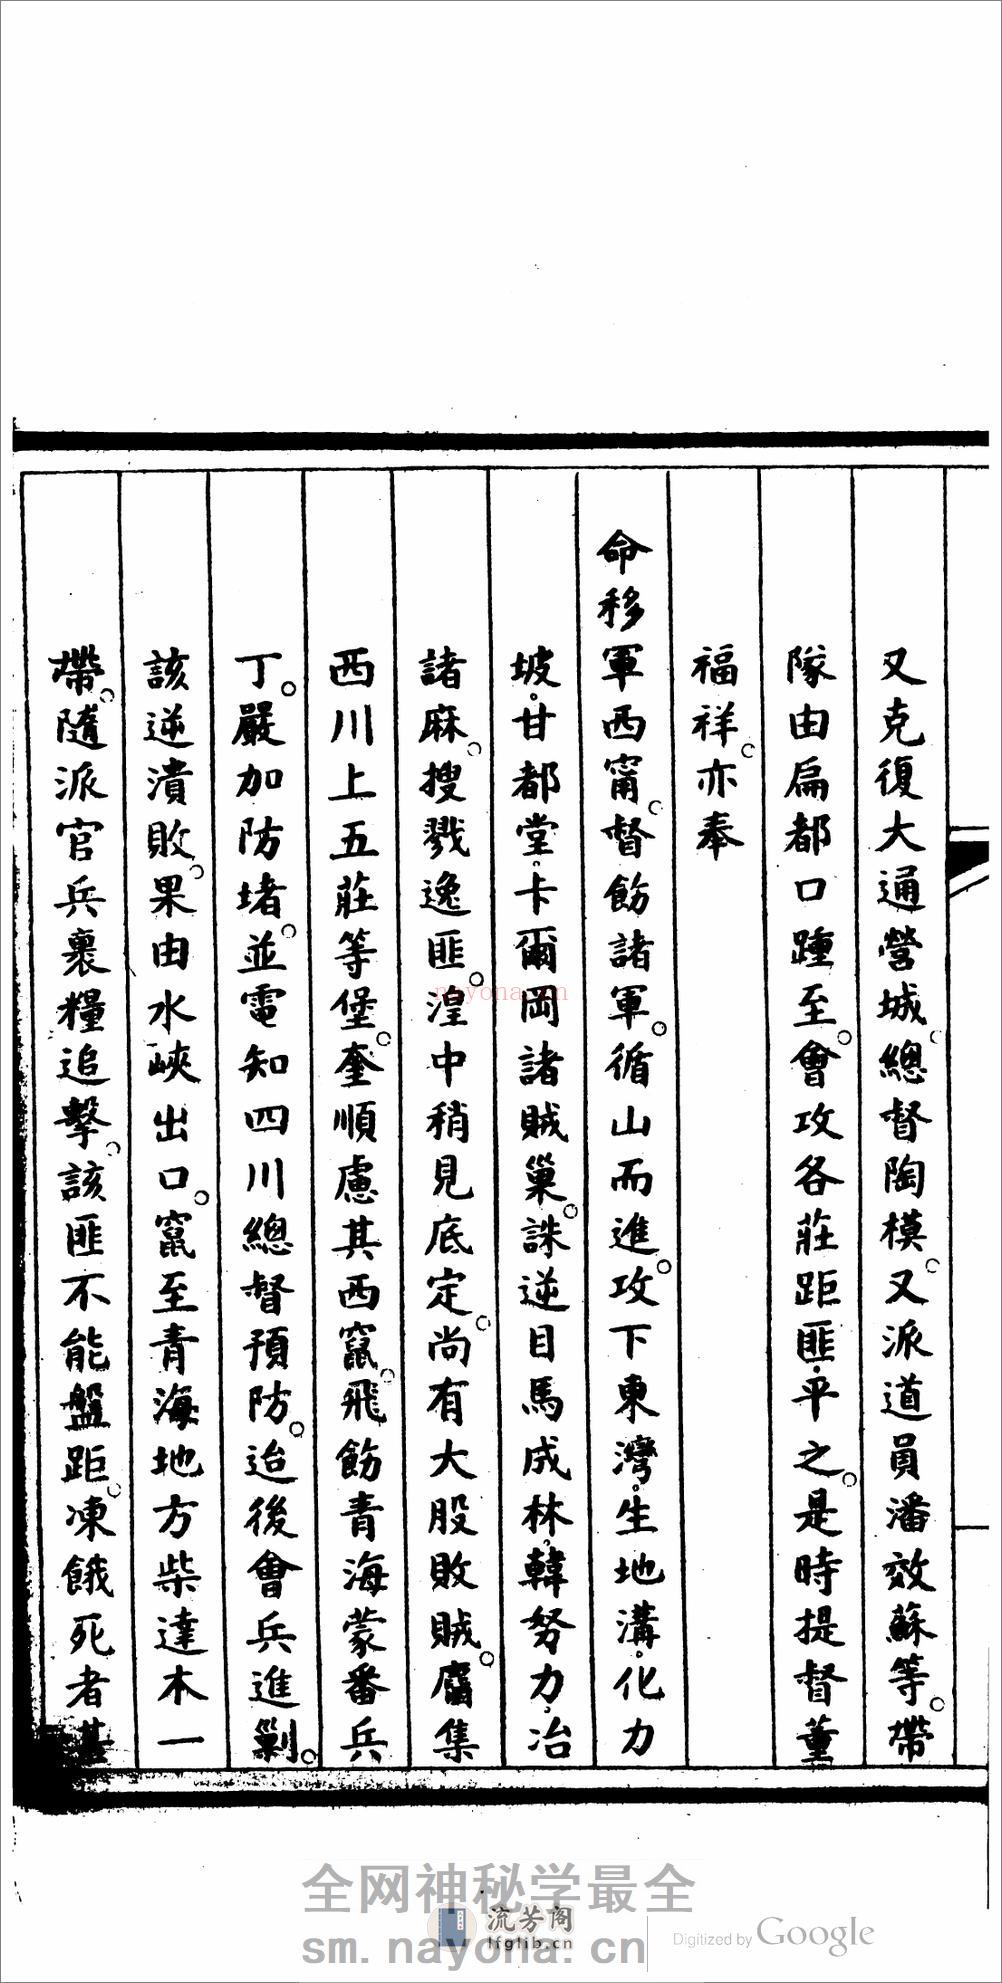 又克復大通營城。總督陶模。又派道員潘效蘇等。帶
隊由扁都口踵至。會攻各莊距匪。平之。是時提督董
福祥。亦奉
命移軍西甯。督飭諸軍。循山而進。攻下東灣。生地溝。化力
坡。甘都堂。卡爾岡諸賊巢。誅逆目馬成林。韓努力。冶
諸麻。搜戮逸匪。湟中稍見底定。尚有大股敗賊。麕集
西川上五莊等堡。奎順慮其西竄。飛飭青海蒙番兵
丁。嚴加防堵。並電知四川總督預防。迨後會兵進剿。
該逆潰敗。果由水峽出口。竄至青海地方柴達木一
帶。隨派官兵裹糧追擊。該匪不能盤距。凍餓死者甚
nayona.cn
全网神秘学最全
流芳阁
lfglib.cn
sm.nayona.cn
Digitized by Google